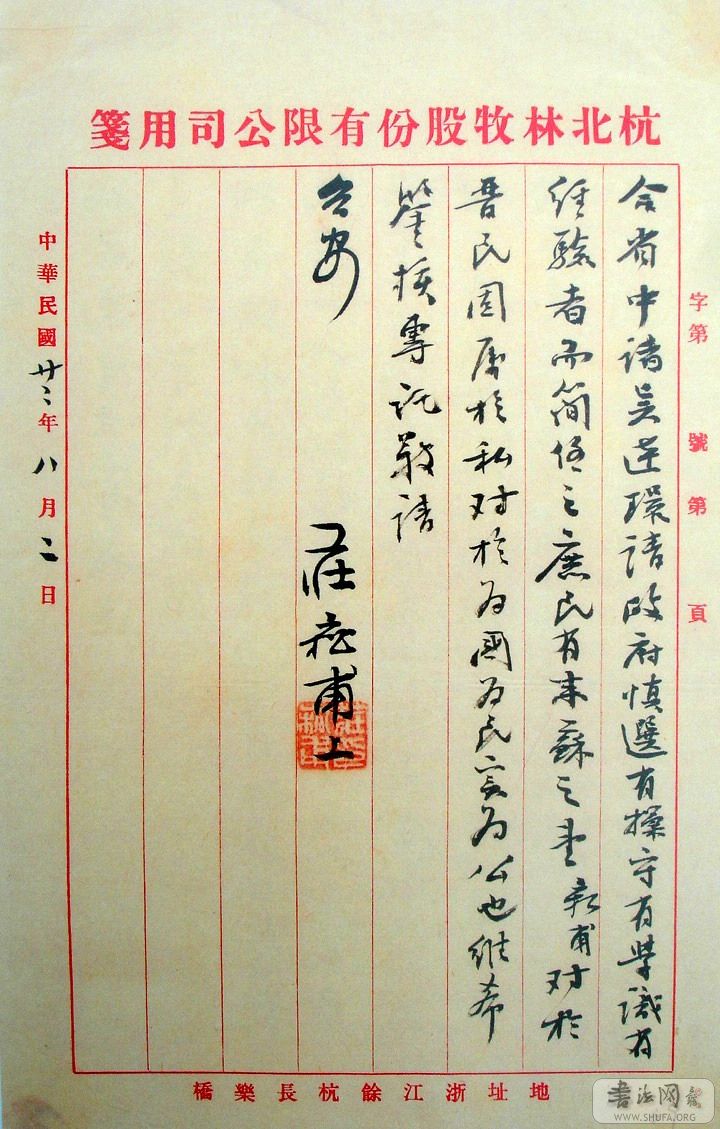 杭北林牧股份有限公司用箋
字第　號第　頁
合省中諸吳逆環請政府慎選有操守有學識有
經驗者而簡任之庶民有來蘇之望崧甫对於
晋民固屬於私对於為國為民实為公也維希
鑒核專託敬請
台安
莊崧甫上
中華民國廿三年八月二日
地址浙江餘杭長樂橋
書法网
WWW.SHUFA.ORG